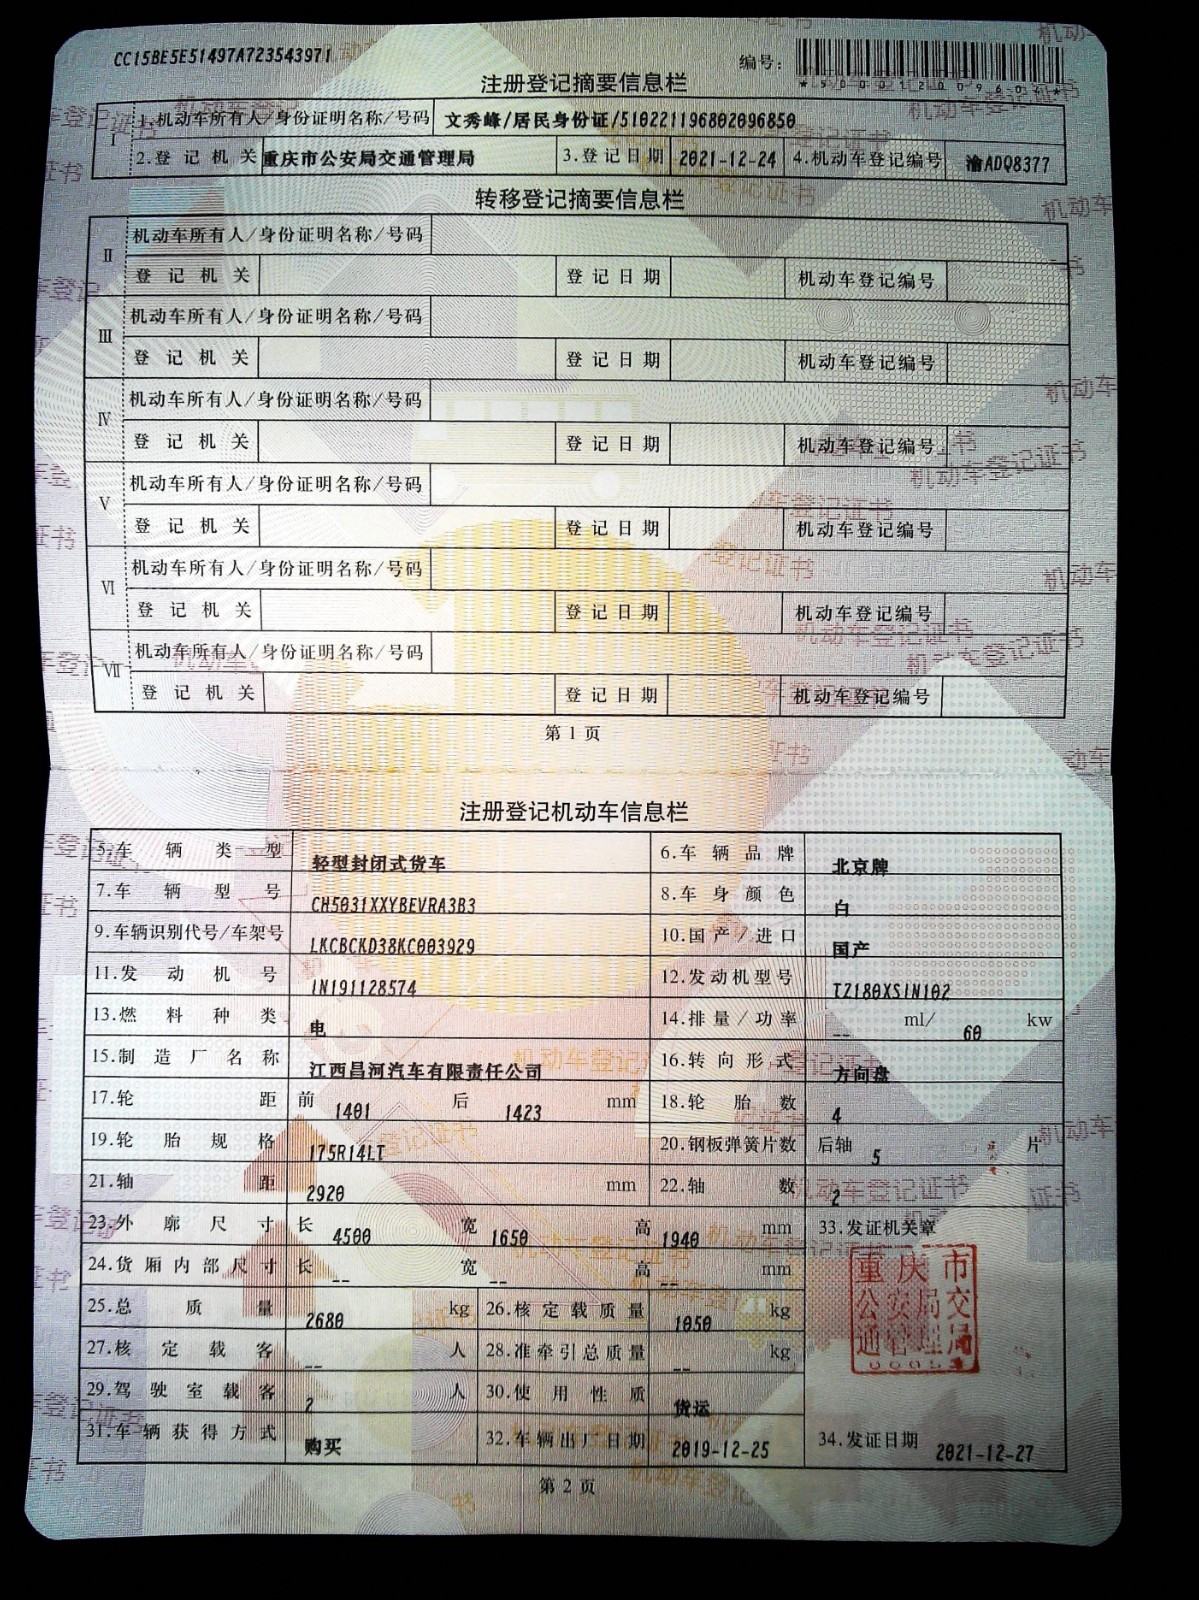 CC15BE5E51497A723543971
编号：
注册登记摘要信息栏
I
1.机动车所有人/身份证明名称/号码 文秀峰/居民身份证/510221196802096850
2.登记机关 重庆市公安局交通管理局 3.登记日期 2021-12-24 4.机动车登记编号 渝ADQ8377
转移登记摘要信息栏
II
机动车所有人/身份证明名称/号码
登记机关 登记日期 机动车登记编号
III
机动车所有人/身份证明名称/号码
登记机关 登记日期 机动车登记编号
IV
机动车所有人/身份证明名称/号码
登记机关 登记日期 机动车登记编号
V
机动车所有人/身份证明名称/号码
登记机关 登记日期 机动车登记编号
VI
机动车所有人/身份证明名称/号码
登记机关 登记日期 机动车登记编号
VII
机动车所有人/身份证明名称/号码
登记机关 登记日期 机动车登记编号
第1页
注册登记机动车信息栏
5.车辆类型 轻型封闭式货车 6.车辆品牌 北京牌
7.车辆型号 CH5031XXYBEVRA3B3 8.车身颜色 白
9.车辆识别代号/车架号 LKCBCKD38KC003929 10.国产/进口 国产
11.发动机号 1N191128574 12.发动机型号 TZ180XS1N102
13.燃料种类 电 14.排量/功率 -- ml/ 60 kw
15.制造厂名称 江西昌河汽车有限责任公司 16.转向形式 方向盘
17.轮距 前 1401 后 1423 mm 18.轮胎数 4
19.轮胎规格 175R14LT 20.钢板弹簧片数 后轴 5 片
21.轴距 2920 mm 22.轴数 2
23.外廓尺寸 长 4500 宽 1650 高 1940 mm 33.发证机关章
24.货厢内部尺寸 长 -- 宽 -- 高 -- mm
25.总质量 2680 kg 26.核定载质量 1050 kg
27.核定载客 -- 人 28.准牵引总质量 -- kg
29.驾驶室载客 2 人 30.使用性质 货运
31.车辆获得方式 购买 32.车辆出厂日期 2019-12-25 34.发证日期 2021-12-27
重庆市
公安局交
通管理局
第2页